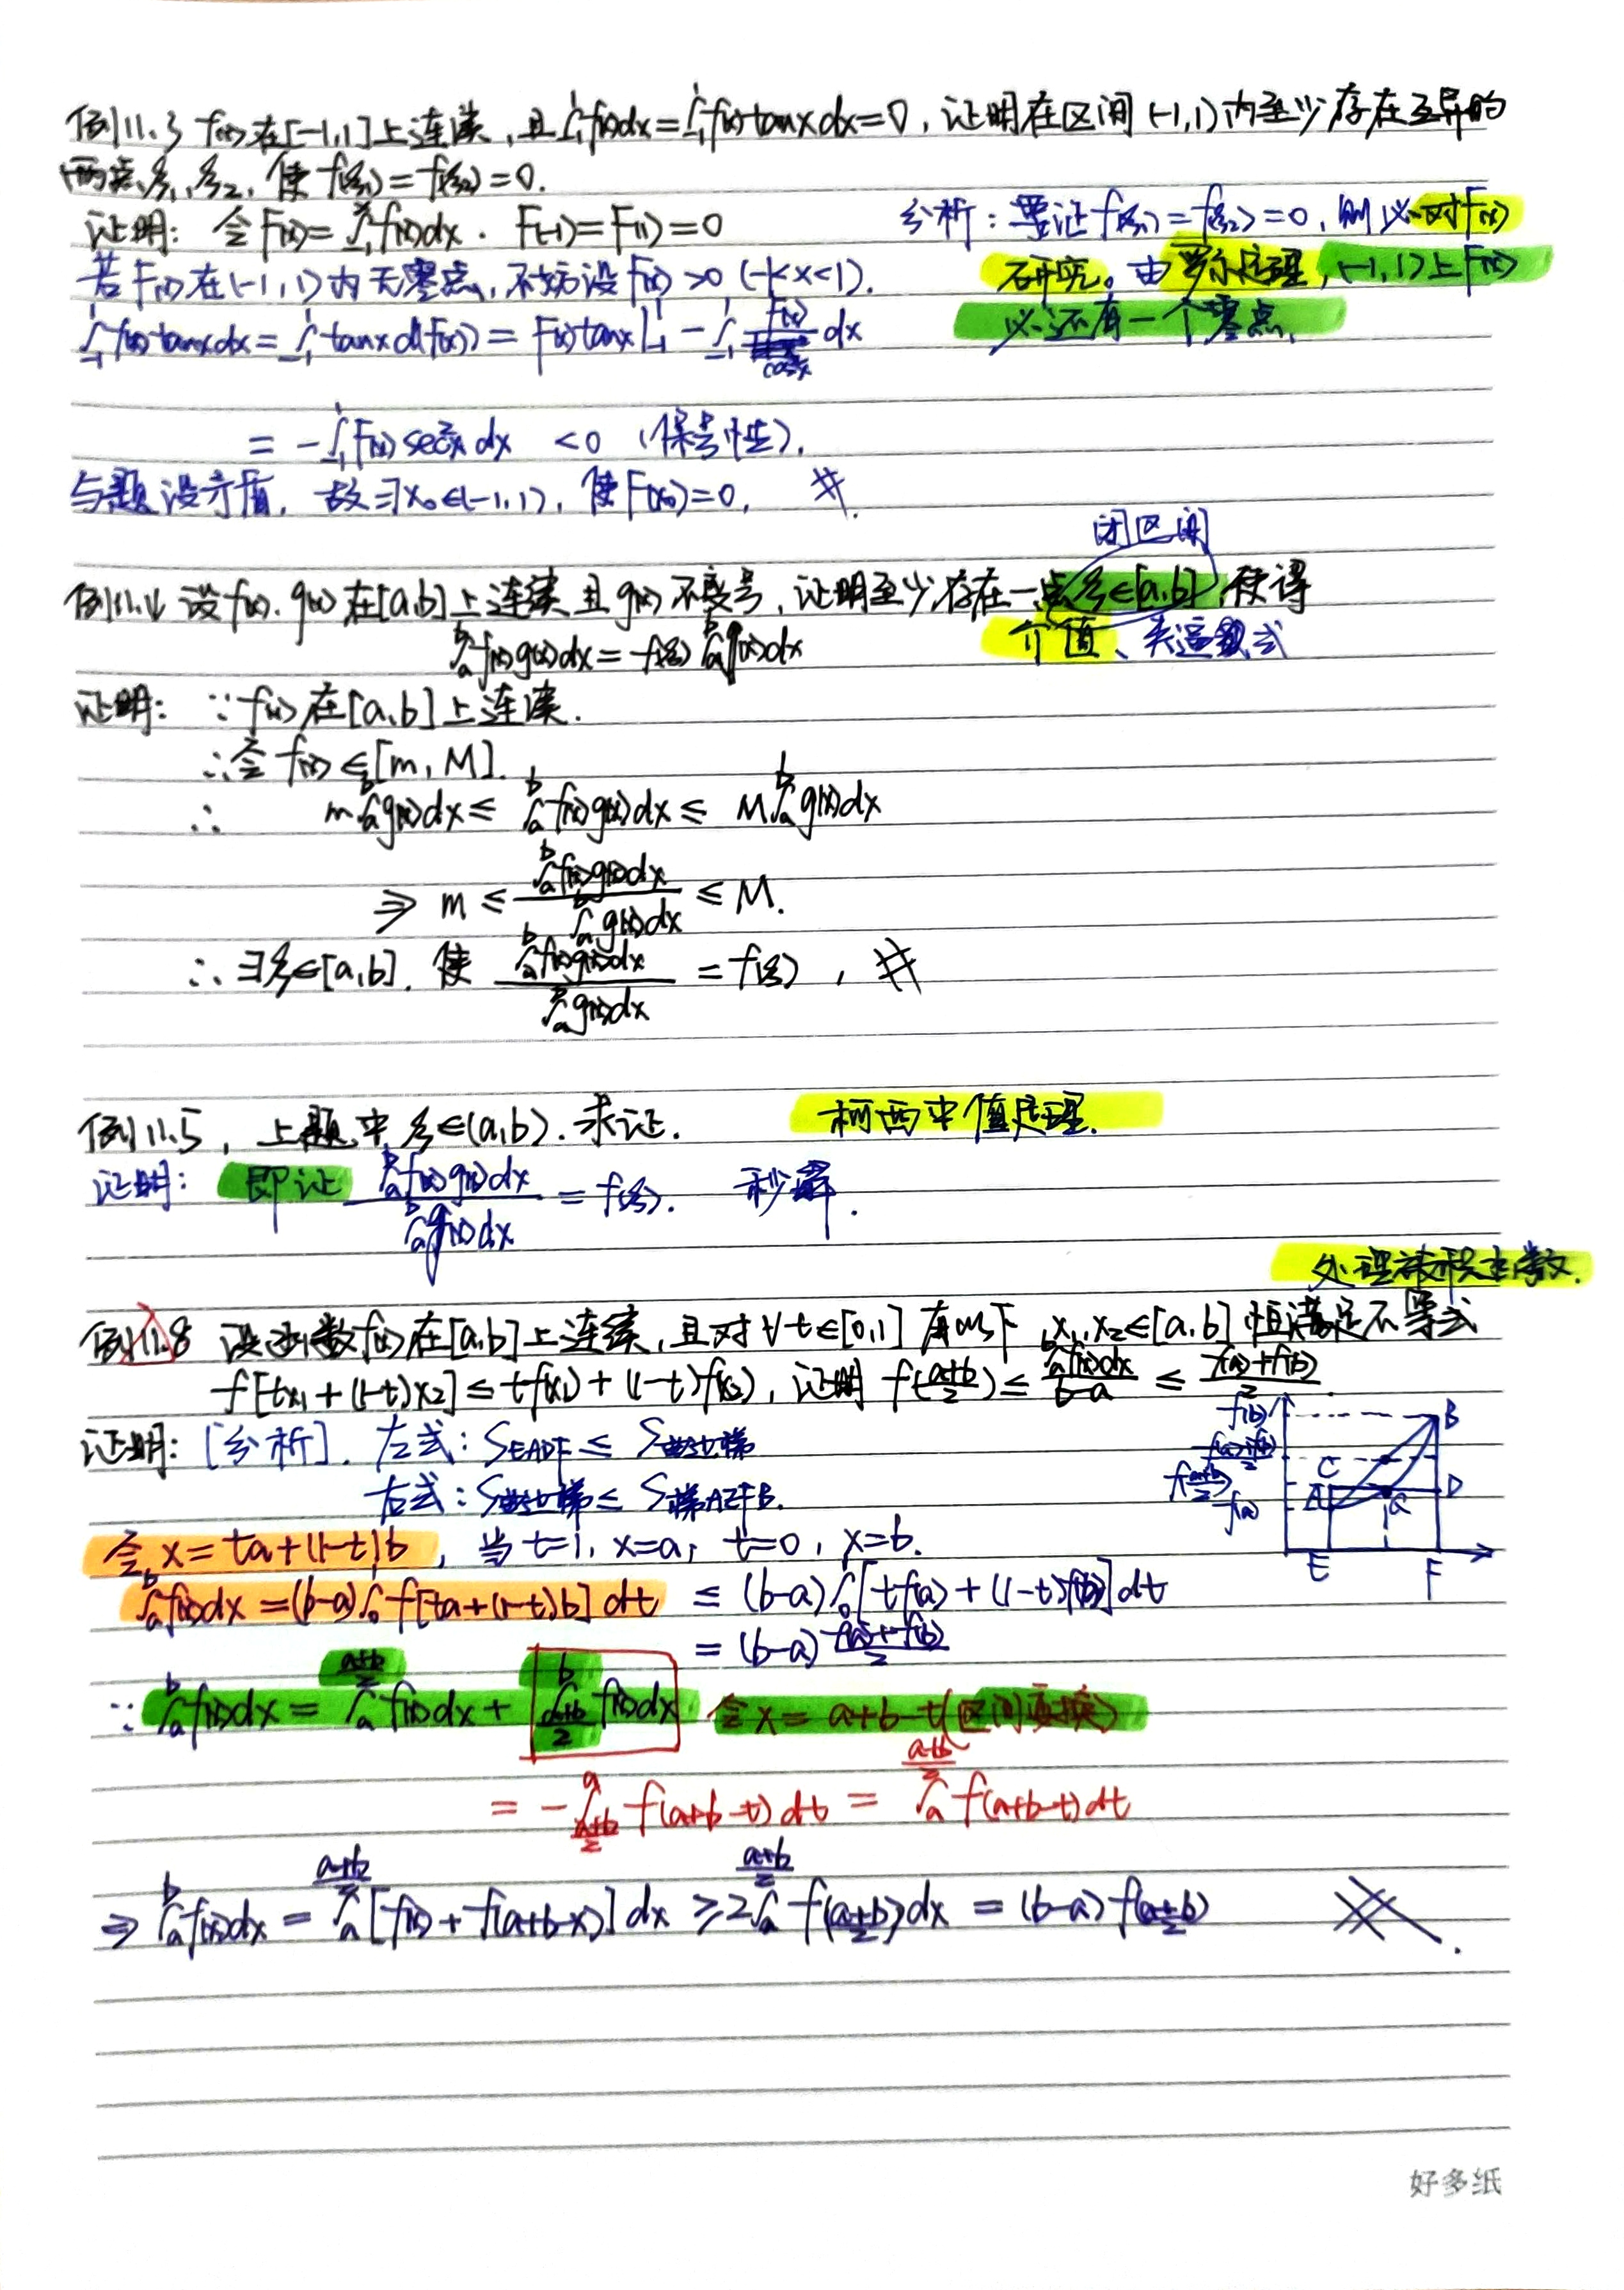 例11.3 f(x)在[-1,1]上连续,且∫₋₁¹f(x)dx=∫₋₁¹f(x)tanxdx=0,证明在区间(-1,1)内至少存在互异的
两点ξ₁,ξ₂,使f(ξ₁)=f(ξ₂)=0.
证明: 令F(x)=∫₋₁ˣf(x)dx. F(-1)=F(1)=0
分析:要证f(ξ₁)=f(ξ₂)=0,则必对F(x)
研究。由罗尔定理,(-1,1)上F(x)
必还有一个零点.
若F(x)在(-1,1)内无零点,不妨设F(x)>0 (-1<x<1).
∫₋₁¹f(x)tanxdx=∫₋₁¹tanxd(F(x))=F(x)tanx|₋₁¹-∫₋₁¹ F(x)/cos²x dx
=-∫₋₁¹F(x)sec²x dx <0 (保号性).
与题设矛盾,故∃x₀∈(-1,1),使F(x₀)=0, #.
闭区间
例11.4 设f(x).g(x)在[a,b]上连续且g(x)不变号,证明至少存在一点ξ∈[a,b],使得
∫ₐᵇf(x)g(x)dx=f(ξ)∫ₐᵇg(x)dx
介值、夹逼 式
证明: ∵f(x)在[a,b]上连续.
∴令f(x)∈[m,M].
∴ m∫ₐᵇg(x)dx≤∫ₐᵇf(x)g(x)dx≤M∫ₐᵇg(x)dx
⇒ m≤ ∫ₐᵇf(x)g(x)dx / ∫ₐᵇg(x)dx ≤M.
∴∃ξ∈[a,b].使 ∫ₐᵇf(x)g(x)dx / ∫ₐᵇg(x)dx =f(ξ), #
例11.5,上题中ξ∈(a,b).求证. 柯西中值定理.
证明: 即证 ∫ₐᵇf(x)g(x)dx / ∫ₐᵇg(x)dx =f(ξ). 秒解.
处理被积函数.
例11.8 设函数f(x)在[a,b]上连续,且对∀t∈[0,1]有以下 x₁,x₂∈[a,b]恒满足不等式
f[tx₁+(1-t)x₂]≤tf(x₁)+(1-t)f(x₂),证明 f((a+b)/2)≤ ∫ₐᵇf(x)dx/(b-a) ≤ (f(a)+f(b))/2.
证明:[分析].左式:S_EADF≤S曲边梯
右式:S曲边梯≤S梯AEFB.
f(b) B
(f(a)+f(b))/2 C
f((a+b)/2) A G D
f(a)
E F
令x=ta+(1-t)b,当t=1,x=a;t=0,x=b.
∫ₐᵇf(x)dx=(b-a)∫₀¹f[ta+(1-t)b]dt ≤(b-a)∫₀¹[tf(a)+(1-t)f(b)]dt
=(b-a) (f(a)+f(b))/2
∵∫ₐᵇf(x)dx=∫ₐ^((a+b)/2)f(x)dx+∫_((a+b)/2)^b f(x)dx 令x=a+b-t(区间变换)
=-∫_((a+b)/2)^a f(a+b-t)dt=∫ₐ^((a+b)/2)f(a+b-t)dt
⇒∫ₐᵇf(x)dx=∫ₐ^((a+b)/2)[f(x)+f(a+b-x)]dx≥2∫ₐ^((a+b)/2)f((a+b)/2)dx=(b-a)f((a+b)/2) #.
好多纸